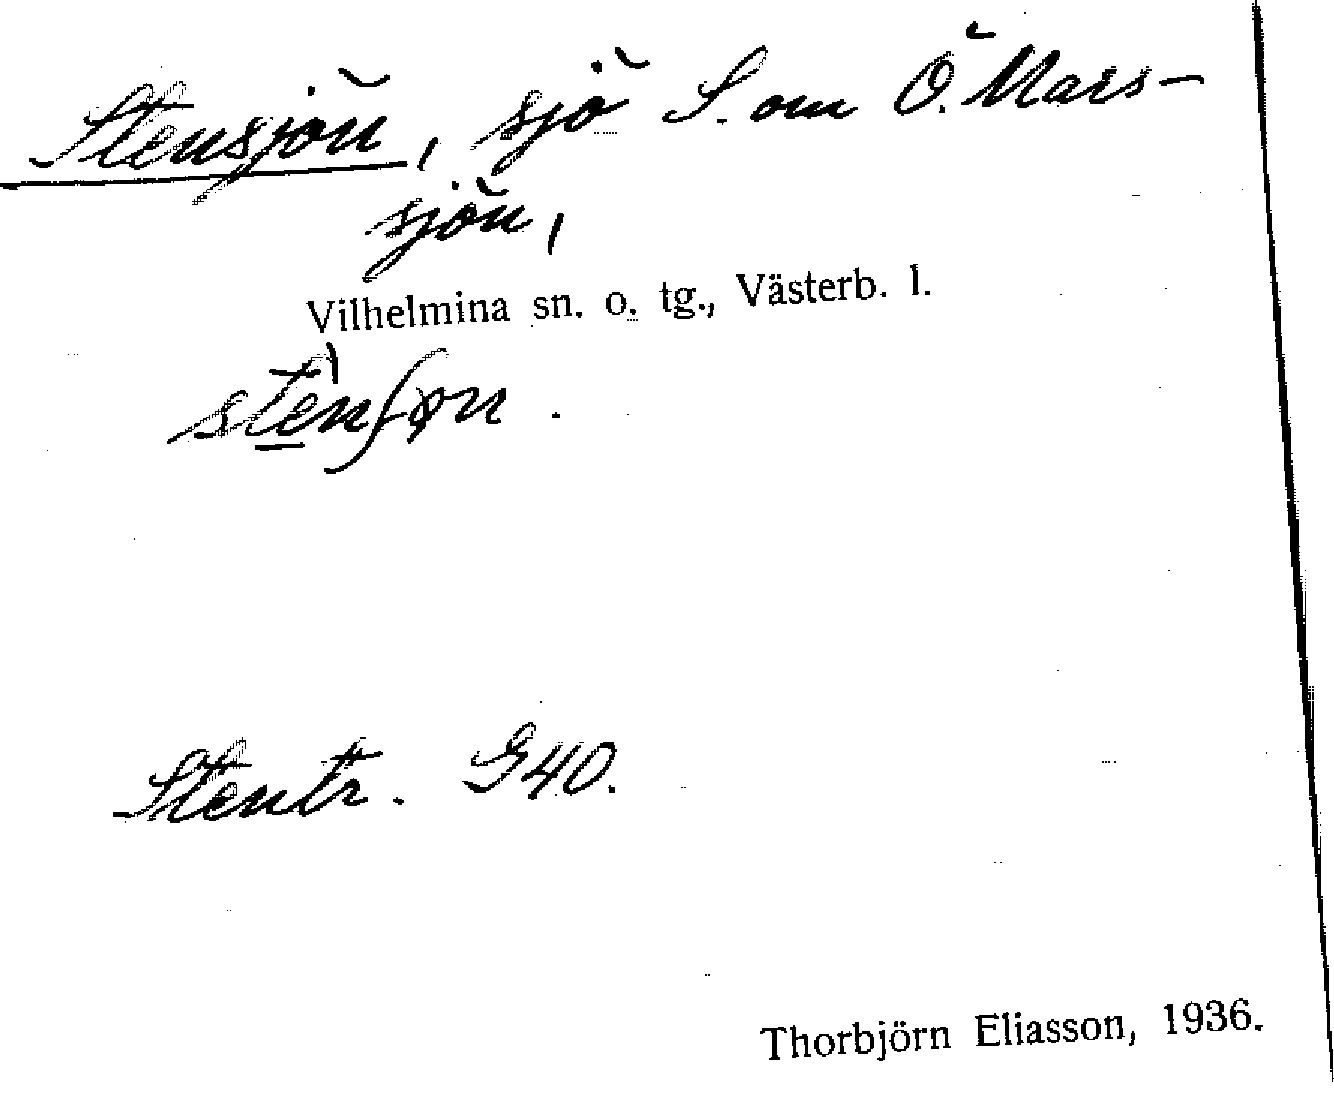 Stensjön, sjö S. om Ö. Mars-
sjön,
Vilhelmina sn. o. tg., Västerb. l.
stènʃøn.
Stentr. G40.
Thorbjörn Eliasson, 1936.